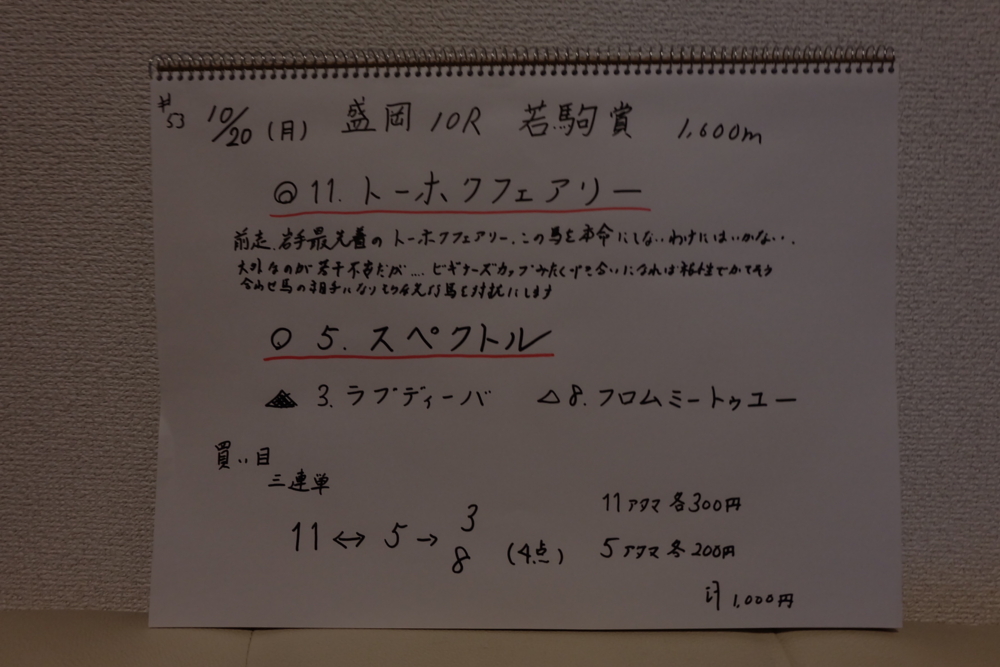 #53 10/20(月) 盛岡10R 若駒賞 1,600m
◎ 11. トーホクフェアリー
前走、岩手最先着のトーホクフェアリー、この馬を本命にしないわけにはいかない、
大外なのが若干不安だが.... ビギナーズカップみたく
合わせ馬の相手になりそうな先行馬を対抗にします
○ 5. スペクトル
▲ 3. ラブディーバ △8. フロムミートゥユー
買い目
三連単
11アタマ 各300円
11 ↔ 5 → 3 8 (4点)
5アタマ 各200円
計 1,000円